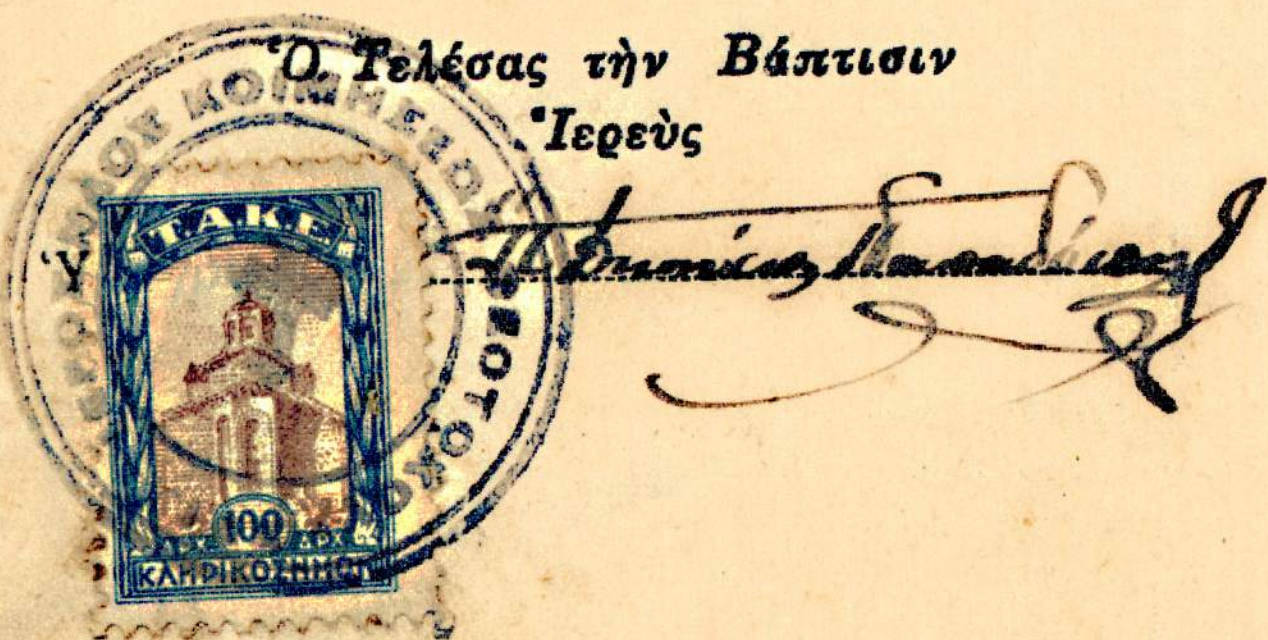 Ὁ Τελέσας τὴν Βάπτισιν
Ἱερεὺς
ΝΑΟΥ ΚΟΙΜΗΣΕΩΣ ΘΕΟΤΟΚΟΥ
Τ.Α.Κ.Ε.
100
ΔΡΧ ΔΡΧ
ΚΛΗΡΙΚΟΣΗΜΟΝ